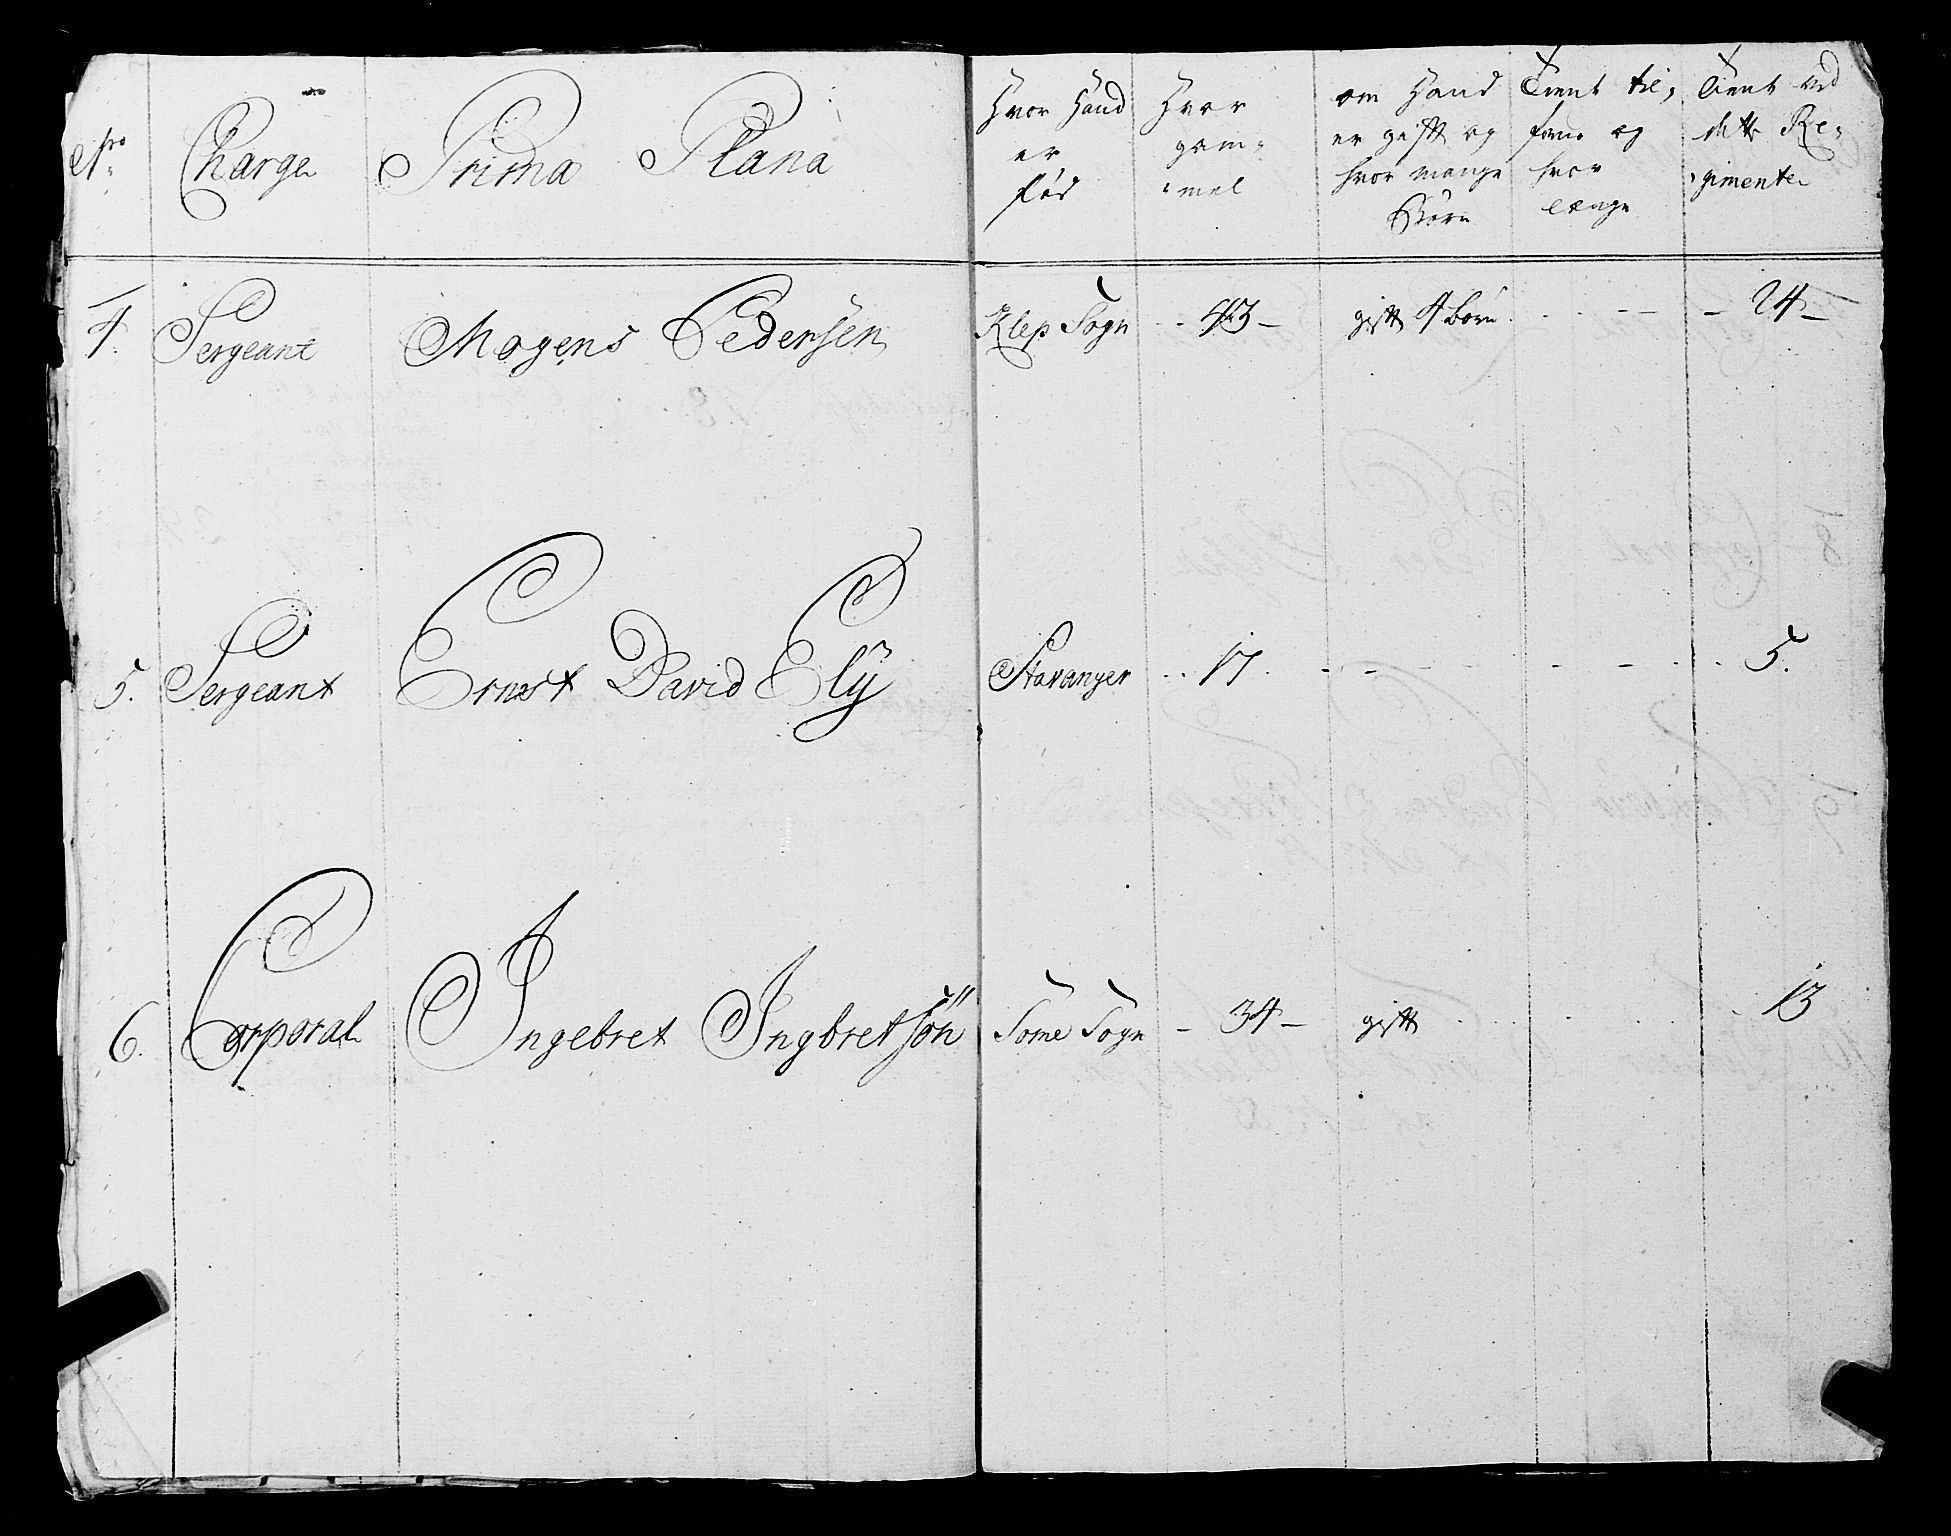 No Charge Prima Plana
Hvor Hand er fød
Hvor gam=mel
om Hand er gift og hvor mange Børn
Tient til, forn og hvor længe
Tient ved dette Re,gimente
4. Sergeant Mogens Pedersen Klep Sogn 43 gift 4 børn 24
5. Sergeant Ernst David Elÿ Stavanger 17. 5.
6. Corporal Ingebret Ingbretsön Some Sogn 34 gift 13